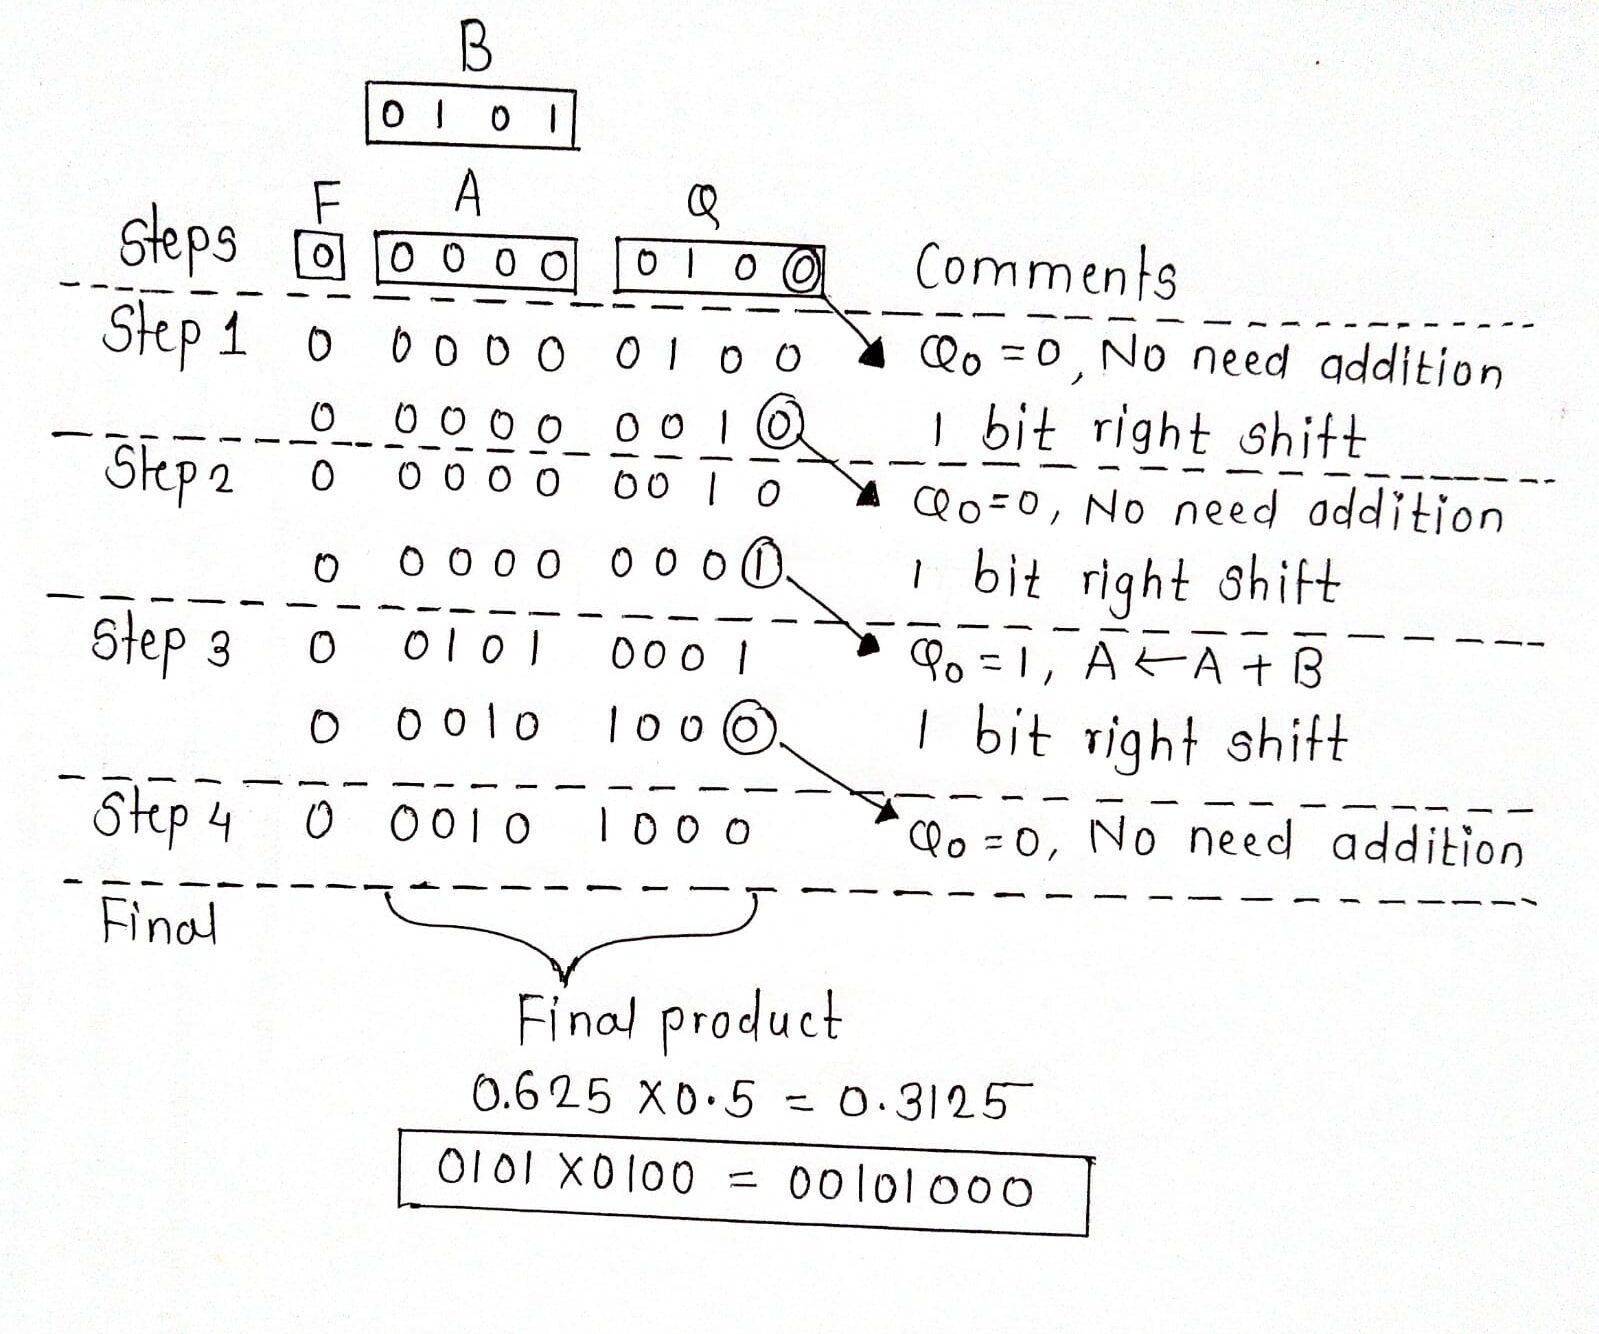 B
0 1 0 1
F A Q
Steps 0 0 0 0 0 0 1 0 0 Comments
Step 1 0 0 0 0 0 0 1 0 0 Q0 = 0, No need addition
0 0 0 0 0 0 0 1 0 1 bit right shift
Step 2 0 0 0 0 0 0 0 1 0 Q0=0, No need addition
0 0 0 0 0 0 0 0 1 1 bit right shift
Step 3 0 0 1 0 1 0 0 0 1 Q0 = 1, A ← A + B
0 0 0 1 0 1 0 0 0 1 bit right shift
Step 4 0 0 0 1 0 1 0 0 0 Q0 = 0, No need addition
Final
Final product
0.625 X 0.5 = 0.3125
0101 X 0100 = 00101000